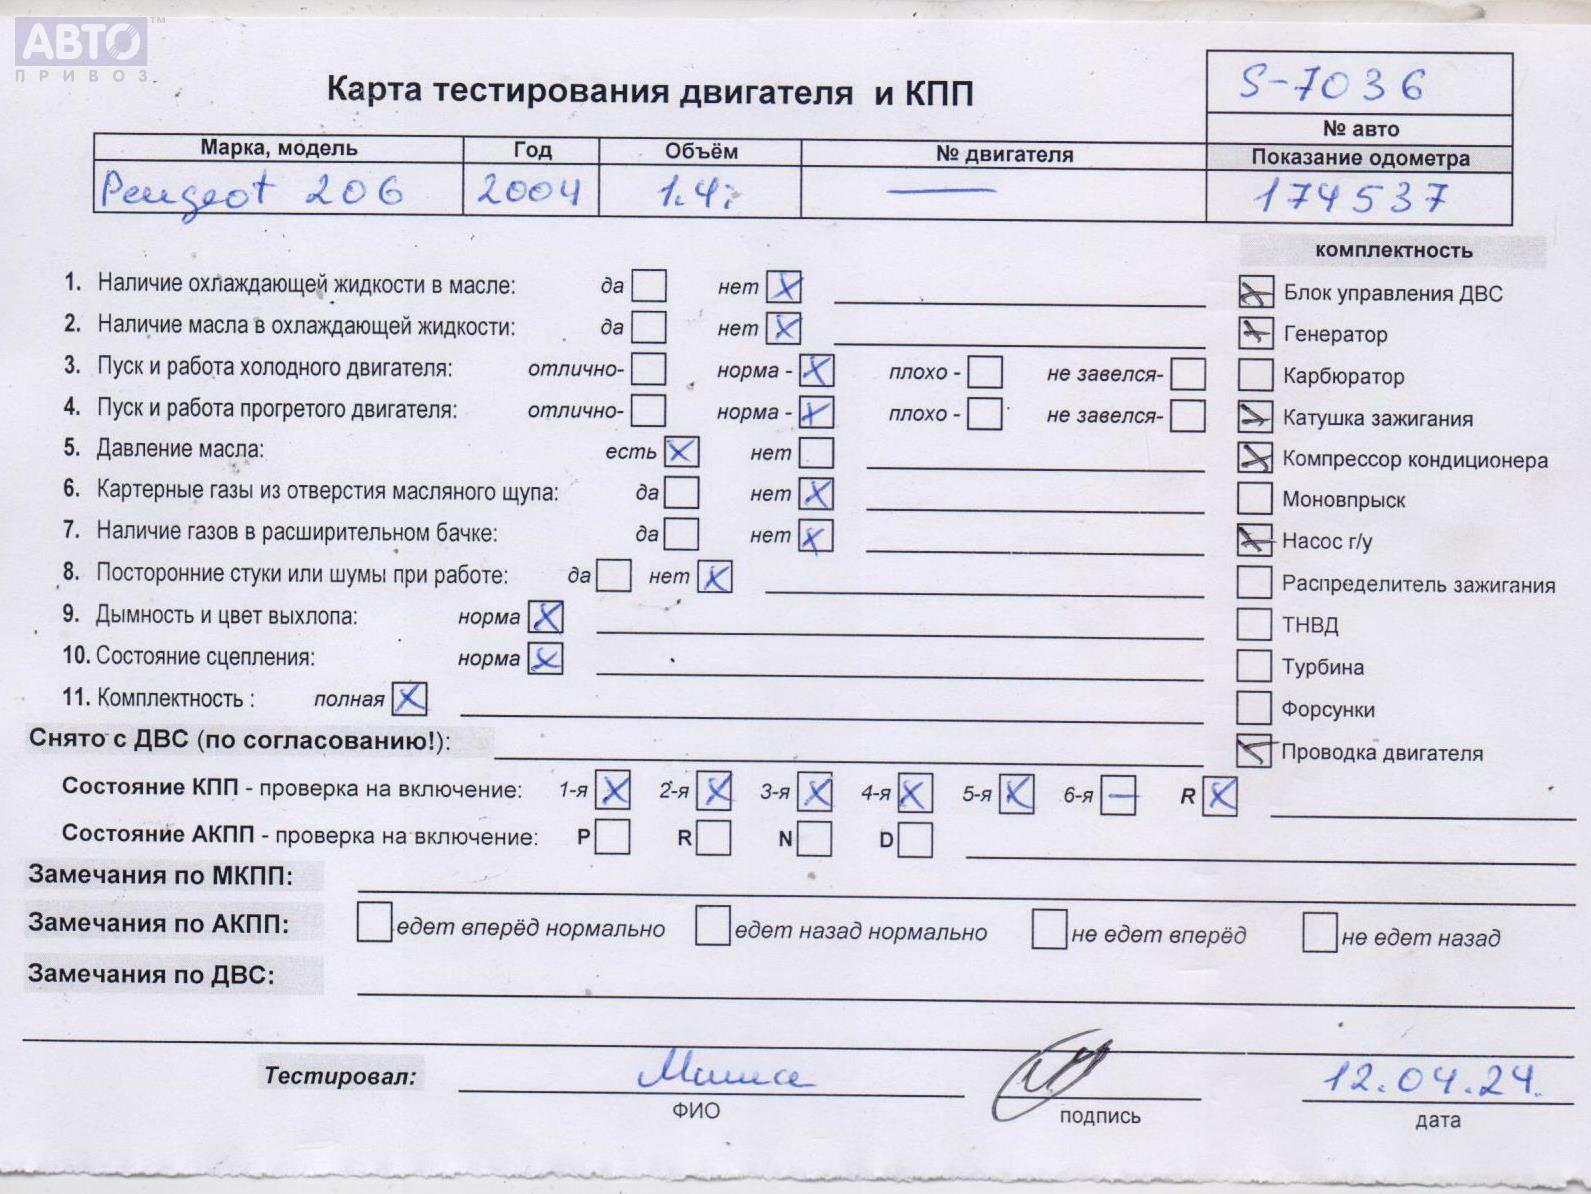 АВТО™
ПРИВОЗ
Карта тестирования двигателя и КПП
S-7036
№ авто
Марка, модель Год Объём № двигателя Показание одометра
Peugeot 206 2004 1.4i — 174537
комплектность
1. Наличие охлаждающей жидкости в масле: да нет X
2. Наличие масла в охлаждающей жидкости: да нет X
3. Пуск и работа холодного двигателя: отлично- норма - X плохо - не завелся-
4. Пуск и работа прогретого двигателя: отлично- норма - X плохо - не завелся-
5. Давление масла: есть X нет
6. Картерные газы из отверстия масляного щупа: да нет X
7. Наличие газов в расширительном бачке: да нет X
8. Посторонние стуки или шумы при работе: да нет X
9. Дымность и цвет выхлопа: норма X
10. Состояние сцепления: норма X
11. Комплектность : полная X
X Блок управления ДВС
X Генератор
Карбюратор
X Катушка зажигания
X Компрессор кондиционера
Моновпрыск
X Насос г/у
Распределитель зажигания
ТНВД
Турбина
Форсунки
X Проводка двигателя
Снято с ДВС (по согласованию!):
Состояние КПП - проверка на включение: 1-я X 2-я X 3-я X 4-я X 5-я X 6-я — R X
Состояние АКПП - проверка на включение: P R N D
Замечания по МКПП:
Замечания по АКПП: едет вперёд нормально едет назад нормально не едет вперёд не едет назад
Замечания по ДВС:
Тестировал: Миша 12.04.24.
ФИО подпись дата